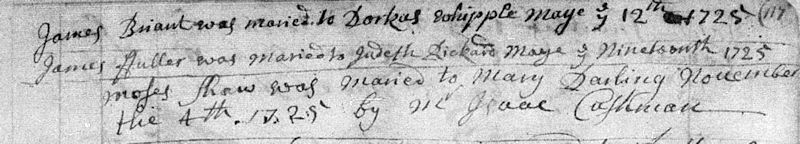 James Briant was maried to Dorkas whipple Maye ye 12th 1725 117
James ffuller was maried to Judeth Rickard Maye ye Nineteenth 1725
moses Shaw was maried to Mary Darling November
the 4th. 1725 by mr Isaac Cushman